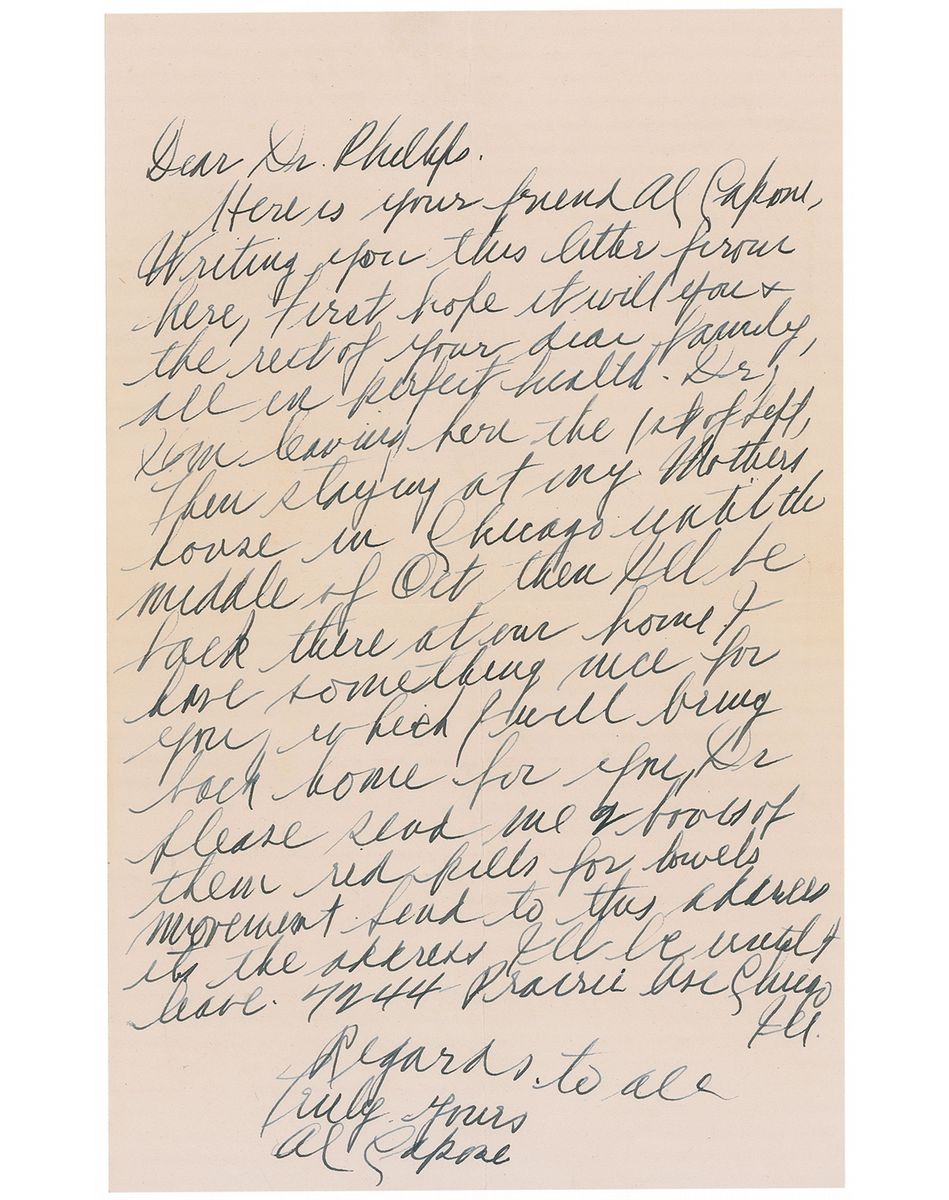 Dear Dr. Phillips.
Here is your friend Al Capone,
Writing you this letter from
here, First hope it will you &
the rest of your dear family,
all in perfect health. Dr,
I'm leaving here the 1st of Sept,
Then staying at my Mothers
house in Chicago until the
middle of Oct then I'll be
back there at our home I
have something nice for
you, which I will bring
back home for you, Dr
Please send me 2 boxes of
them red pills for bowels
movement Send to this address
its the address I'll be until I
leave. 7244 Prairie Ave Chicago
Ill.
Regards to all
Truly yours
Al Capone